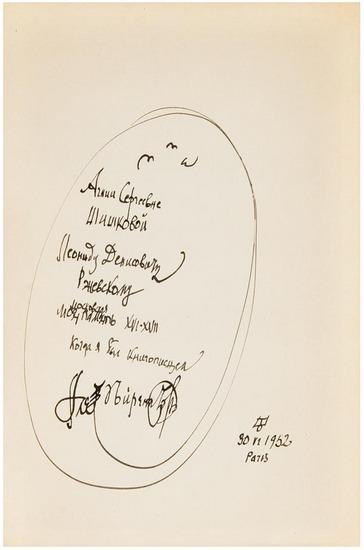 Агнии Сергеевне
Шишковой
Леониду Денисовичу
Ржевскому
московская
Моя память XVI-XVII
когда я был книгописцем
30 VI 1952
Paris